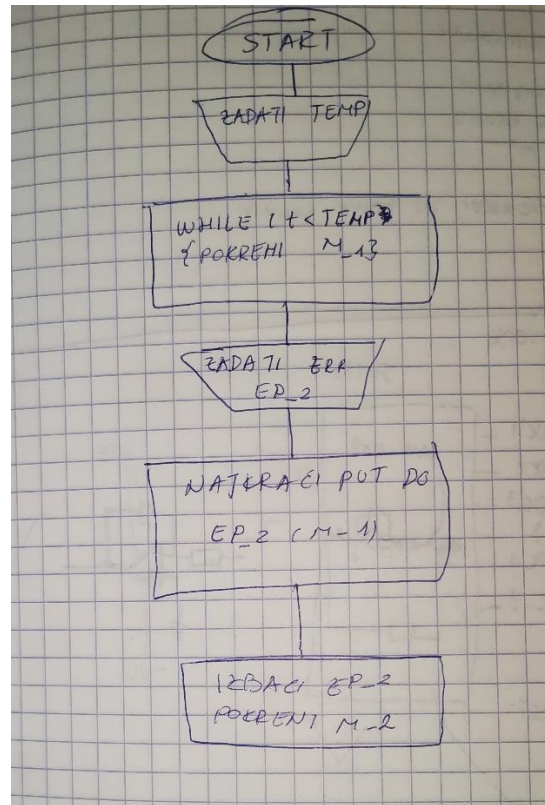 START
ZADATI TEMP
WHILE ( t < TEMP
{POKRENI M_1}
ZADATI ERR
EP_2
NAJKRAĆI PUT DO
EP_2 (M-1)
IZBACI EP_2
POKRENI M_2